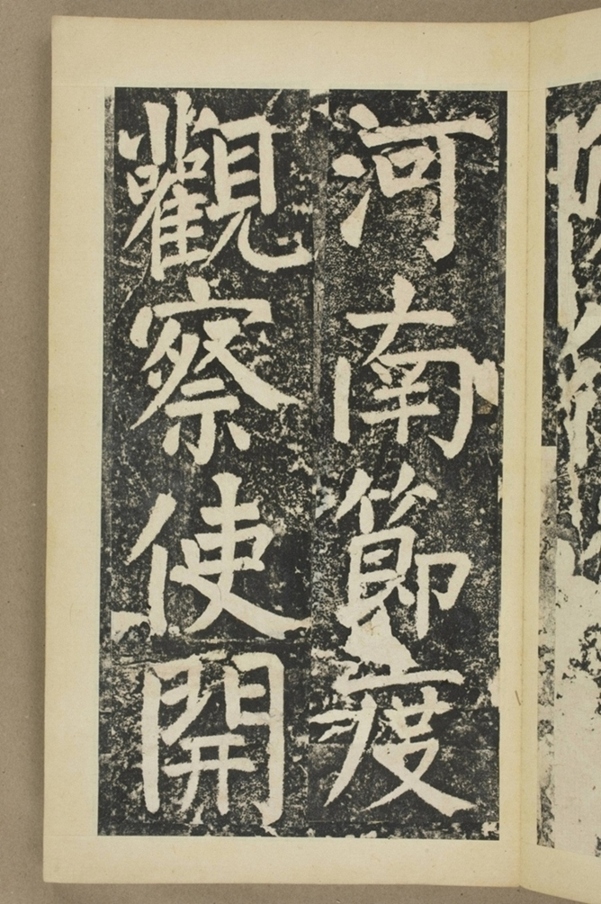 河南節度
觀察使開